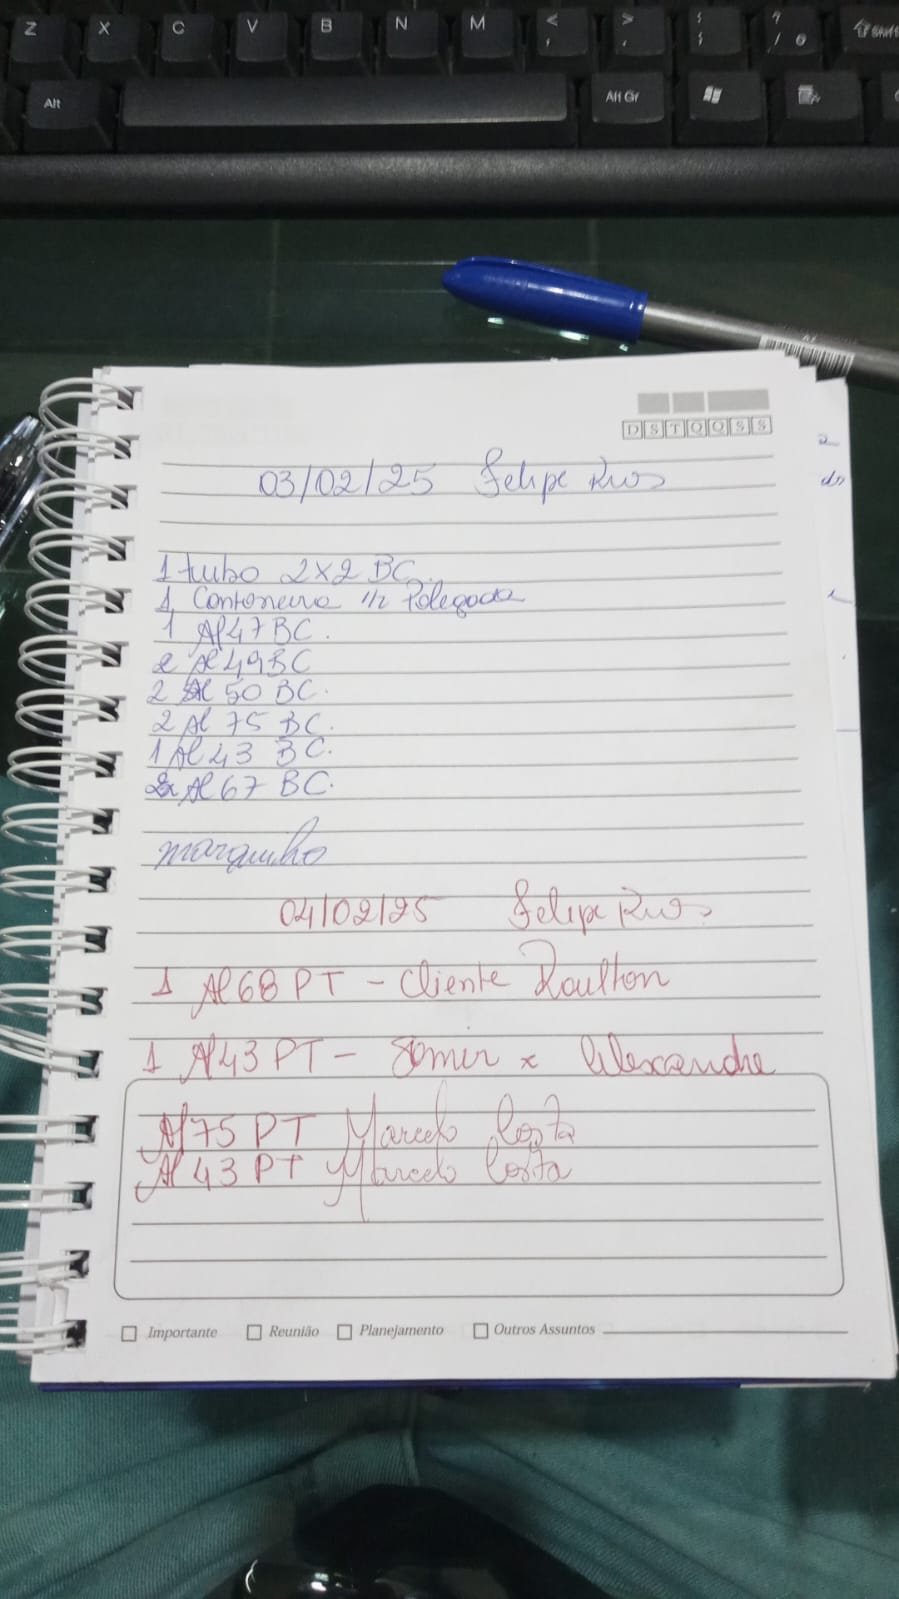 Z X C V B N M < , > . : ; ? / ° Shift
Alt Alt Gr
D S T Q Q S S
03/02/25 Felipe Rios
1 tubo 2x2 BC.
1 Cantoneira 1/2 Polegada
1 Al 47 BC.
2 Al 49 BC
2 Al 50 BC.
2 Al 75 BC.
1 Al 43 BC.
2 Al 67 BC.
marquinho
04/02/25 Felipe Rios
1 Al 68 PT - Cliente
1 Al 43 PT - x Alexandre
Al 75 PT Marcelo Costa
Al 43 PT Marcelo Costa
Importante Reunião Planejamento Outros Assuntos